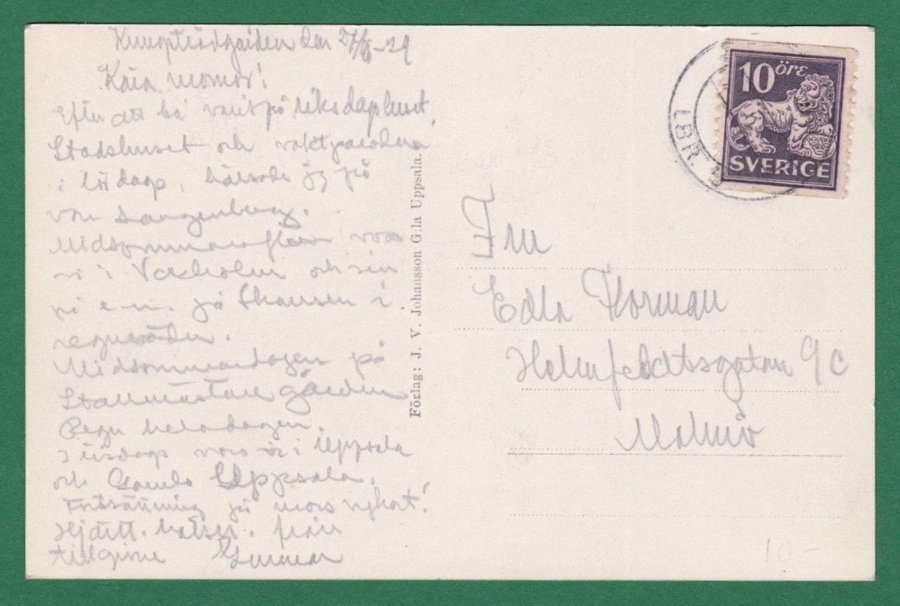 Kungsträdgården den 27/6-29
Kära mormor!
Efter att ha varit på riksdagshuset,
Stadshuset och vaktparaden
i lördags, hälsade jag på
von
Midsommarafton voro
vi i Vaxholm och sen
på e.m. på Skansen i
regnväder.
Midsommardagen på
Stallmästaregården
Regn hela dagen.
I tisdags voro vi i Uppsala
och Gamla Uppsala.
Fortsättning på mors vykort!
Hjärtl. hälsn. från
tillgivne Gunnar
Förlag: J. V. Johansson G:la Uppsala.
10 öre
SVERIGE
LBR. 5
Fru
Edla Norman
Helmfeldtsgatan 9c
Malmö
10-